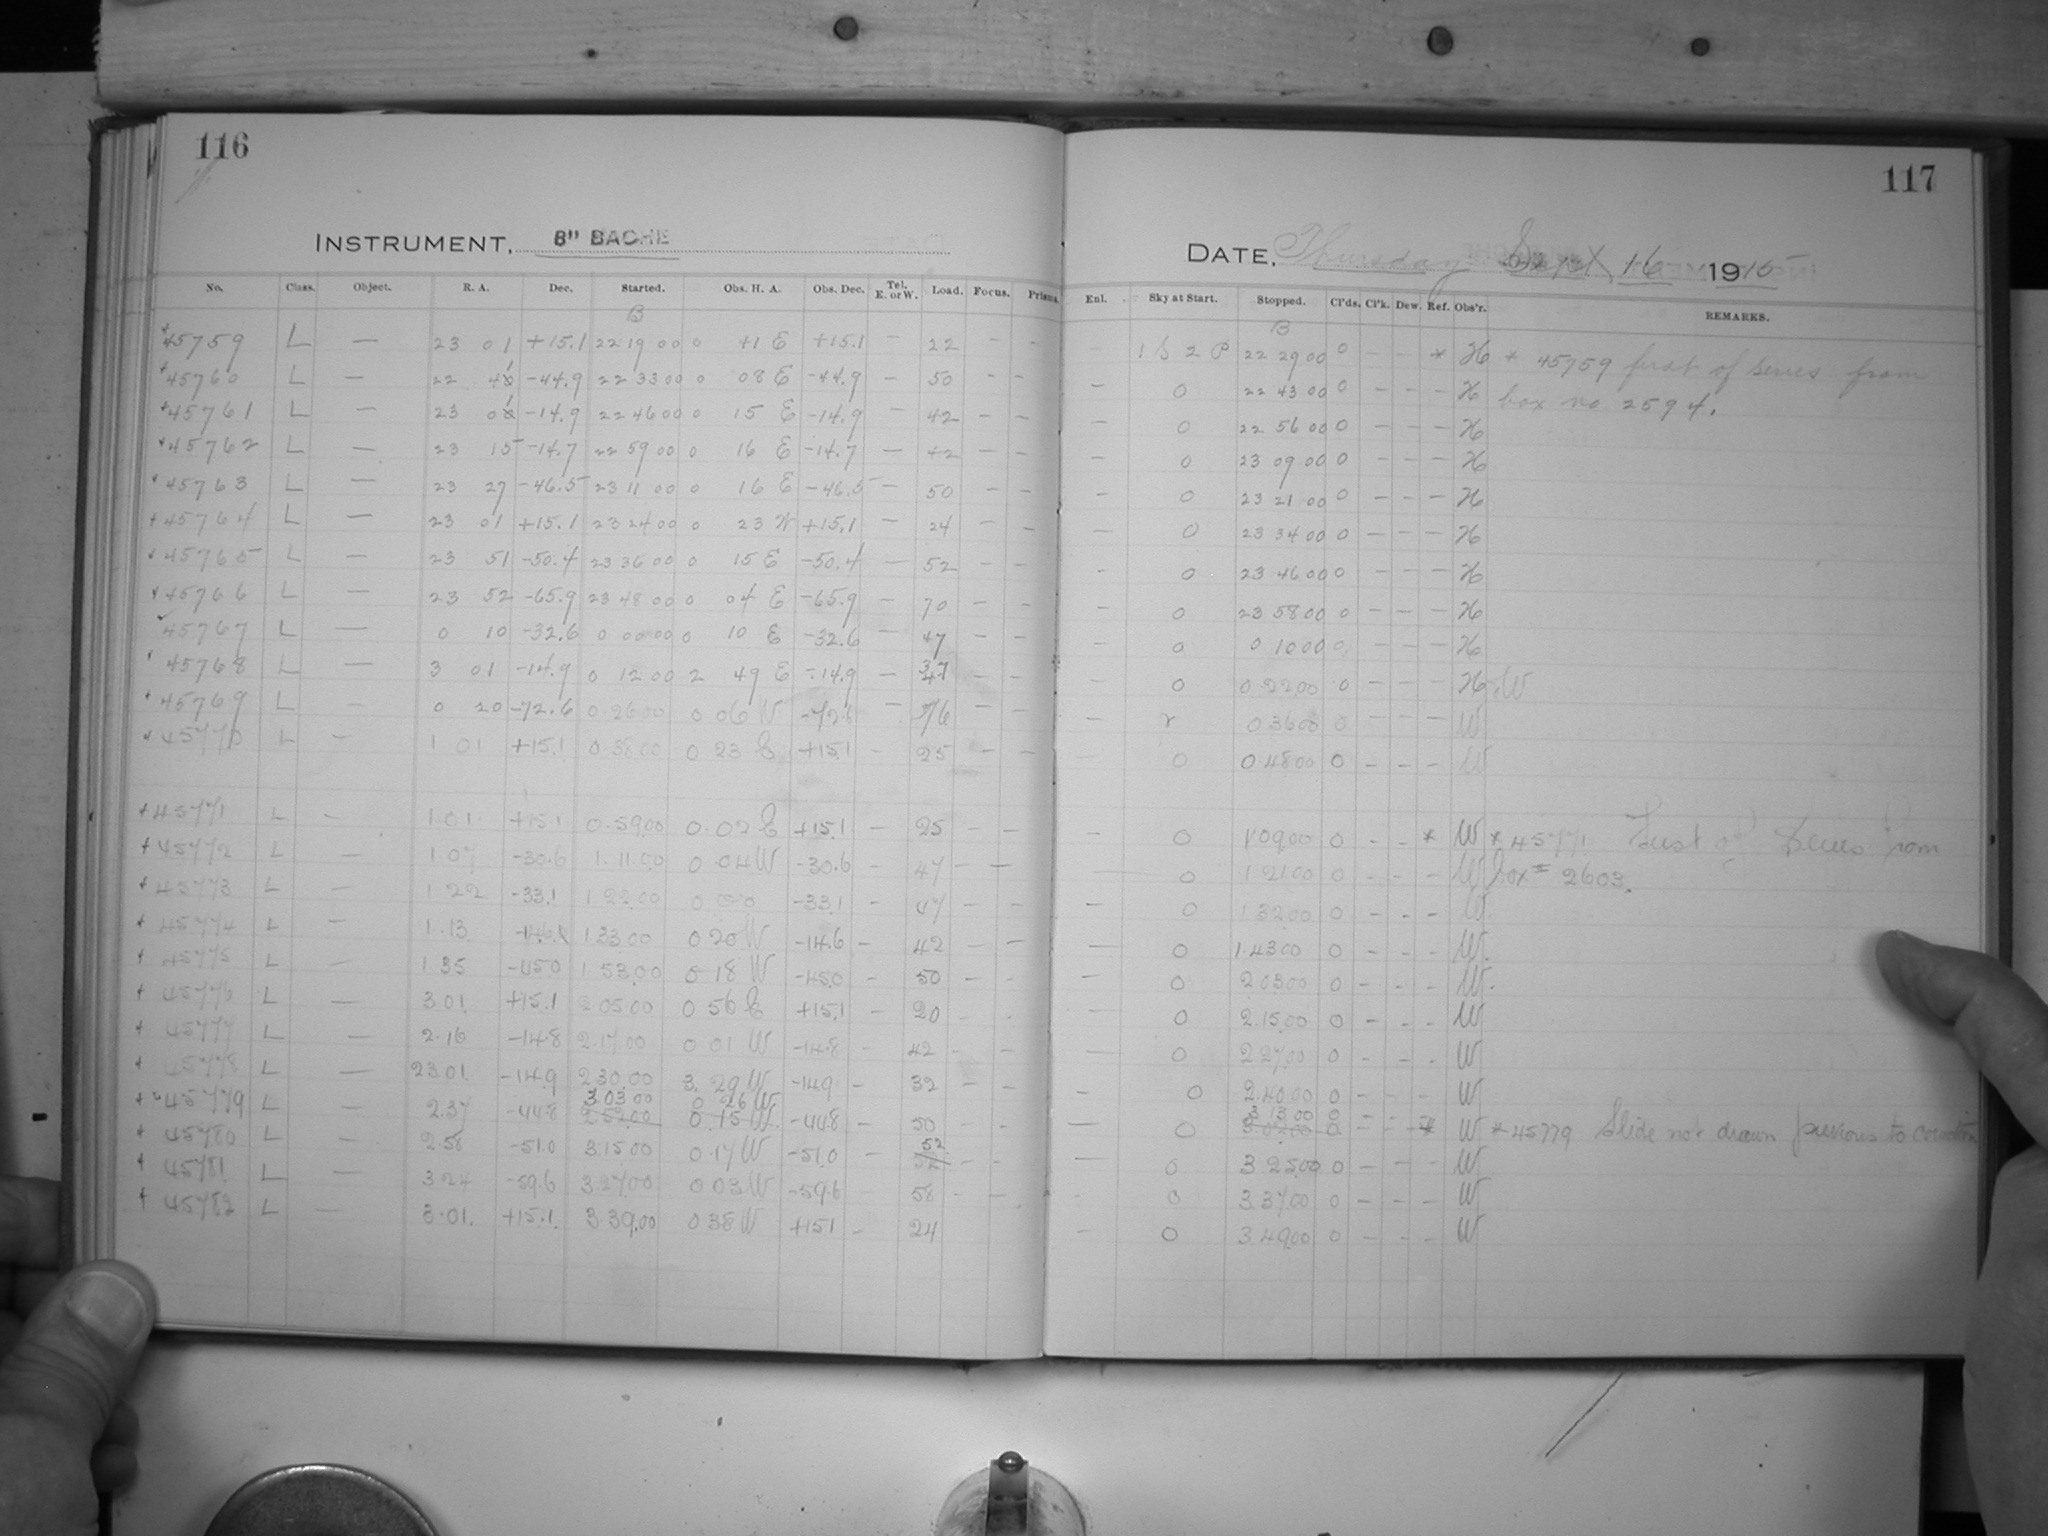 116
117
INSTRUMENT, 8" BACHE
DATE, Thursday Sept 16 1915
No. Class. Object. R. A. Dec. Started. Obs. H. A. Obs. Dec. Tel. E. or W. Load. Focus. Prisms. Enl. Sky at Start. Stopped. Cl'ds. Cl'k. Dew. Ref. Obs'r. REMARKS.
B B
45759 L — 23 01 +15.1 22 19 00 0 41 E +15.1 — 22 – – – 1 S 2 P 22 29 00 0 – – * H * 45759 first of series from
45760 L — 22 41 -44.9 22 33 00 0 08 E -44.9 – 50 – – – 0 22 43 00 0 – – – H box no 2594.
45761 L — 23 01 -14.9 22 46 00 0 15 E -14.9 – 42 – – – 0 22 56 00 0 – – – H
45762 L — 23 15 -14.7 22 59 00 0 16 E -14.7 — 42 – – – 0 23 09 00 0 – – – H
45763 L — 23 27 -46.5 23 11 00 0 16 E -46.5 – 50 – – – 0 23 21 00 0 – – – H
45764 L — 23 01 +15.1 23 24 00 0 23 W +15.1 – 24 – – — 0 23 34 00 0 – – – H
45765 L — 23 51 -50.4 23 36 00 0 15 E -50.4 — 52 – – – 0 23 46 00 0 – – – H
45766 L — 23 52 -65.9 23 48 00 0 04 E -65.9 – 70 – – — 0 23 58 00 0 – – – H
45767 L — 0 10 -32.6 0 00 00 0 10 E -32.6 – 47 – – – 0 0 10 00 0 – – – H
45768 L — 3 01 -14.9 0 12 00 2 49 E -14.9 – 37 – – – 0 0 22 00 0 – – – H.W
45769 L — 0 20 -72.6 0 26 00 0 06 W -72.6 – 76 – – – 0 36 00 0 – – – W
45770 L — 1 01 +15.1 0 38 00 0 23 E +15.1 – 25 – – — 0 0 48 00 0 – – – W
45771 L — 1 01 +15.1 0.59.00 0.02 E +15.1 – 25 – – 0 1 09 00 0 – – * W * 45771 First of Series from
45772 L — 1.07 -30.6 1.11.00 0 04 W -30.6 – 47 – — — 0 1 21 00 0 – – – W box # 2603.
45773 L — 1 22 -33.1 1 22 00 0 00 -33.1 – 47 – – — 0 1 32 00 0 – – – W.
45774 L — 1.13 -14.6 1 33 00 0 20 W -14.6 – 42 – – — 0 1 43 00 0 – – – W.
45775 L — 1 35 -45.0 1 53 00 0 18 W -45.0 – 50 – – — 0 2 03 00 0 – – – W.
45776 L — 3 01 +15.1 2 05 00 0 56 E +15.1 – 20 – – — 0 2 15 00 0 – – – W
45777 L — 2.16 -14.8 2.17.00 0 01 W -14.8 – 42 – – — 0 2 27 00 0 – – – W
45778 L — 23 01 -14.9 2 30.00 3.29 W -14.9 – 32 – – – 0 2 40 00 0 – – – W
3.03 00 0 26 W 3 13 00 0
45779 L — 2.37 -44.8 2.52.00 0.15 W -44.8 – 50 – – — 0 3.02.00 0 – – * W * 45779 Slide not drawn previous to correction
45780 L — 2.58 -51.0 3.15 00 0 17 W -51.0 – 52 – – — 0 3 25 00 0 – – – W
45781 L — 3 24 -59.6 3 27 00 0 03 W -59.6 58 – – 0 3 37 00 0 – – – W
45782 L — 3.01. +15.1. 3 39.00 0 38 W +15.1 – 24 — 0 3 49 00 0 – – – W